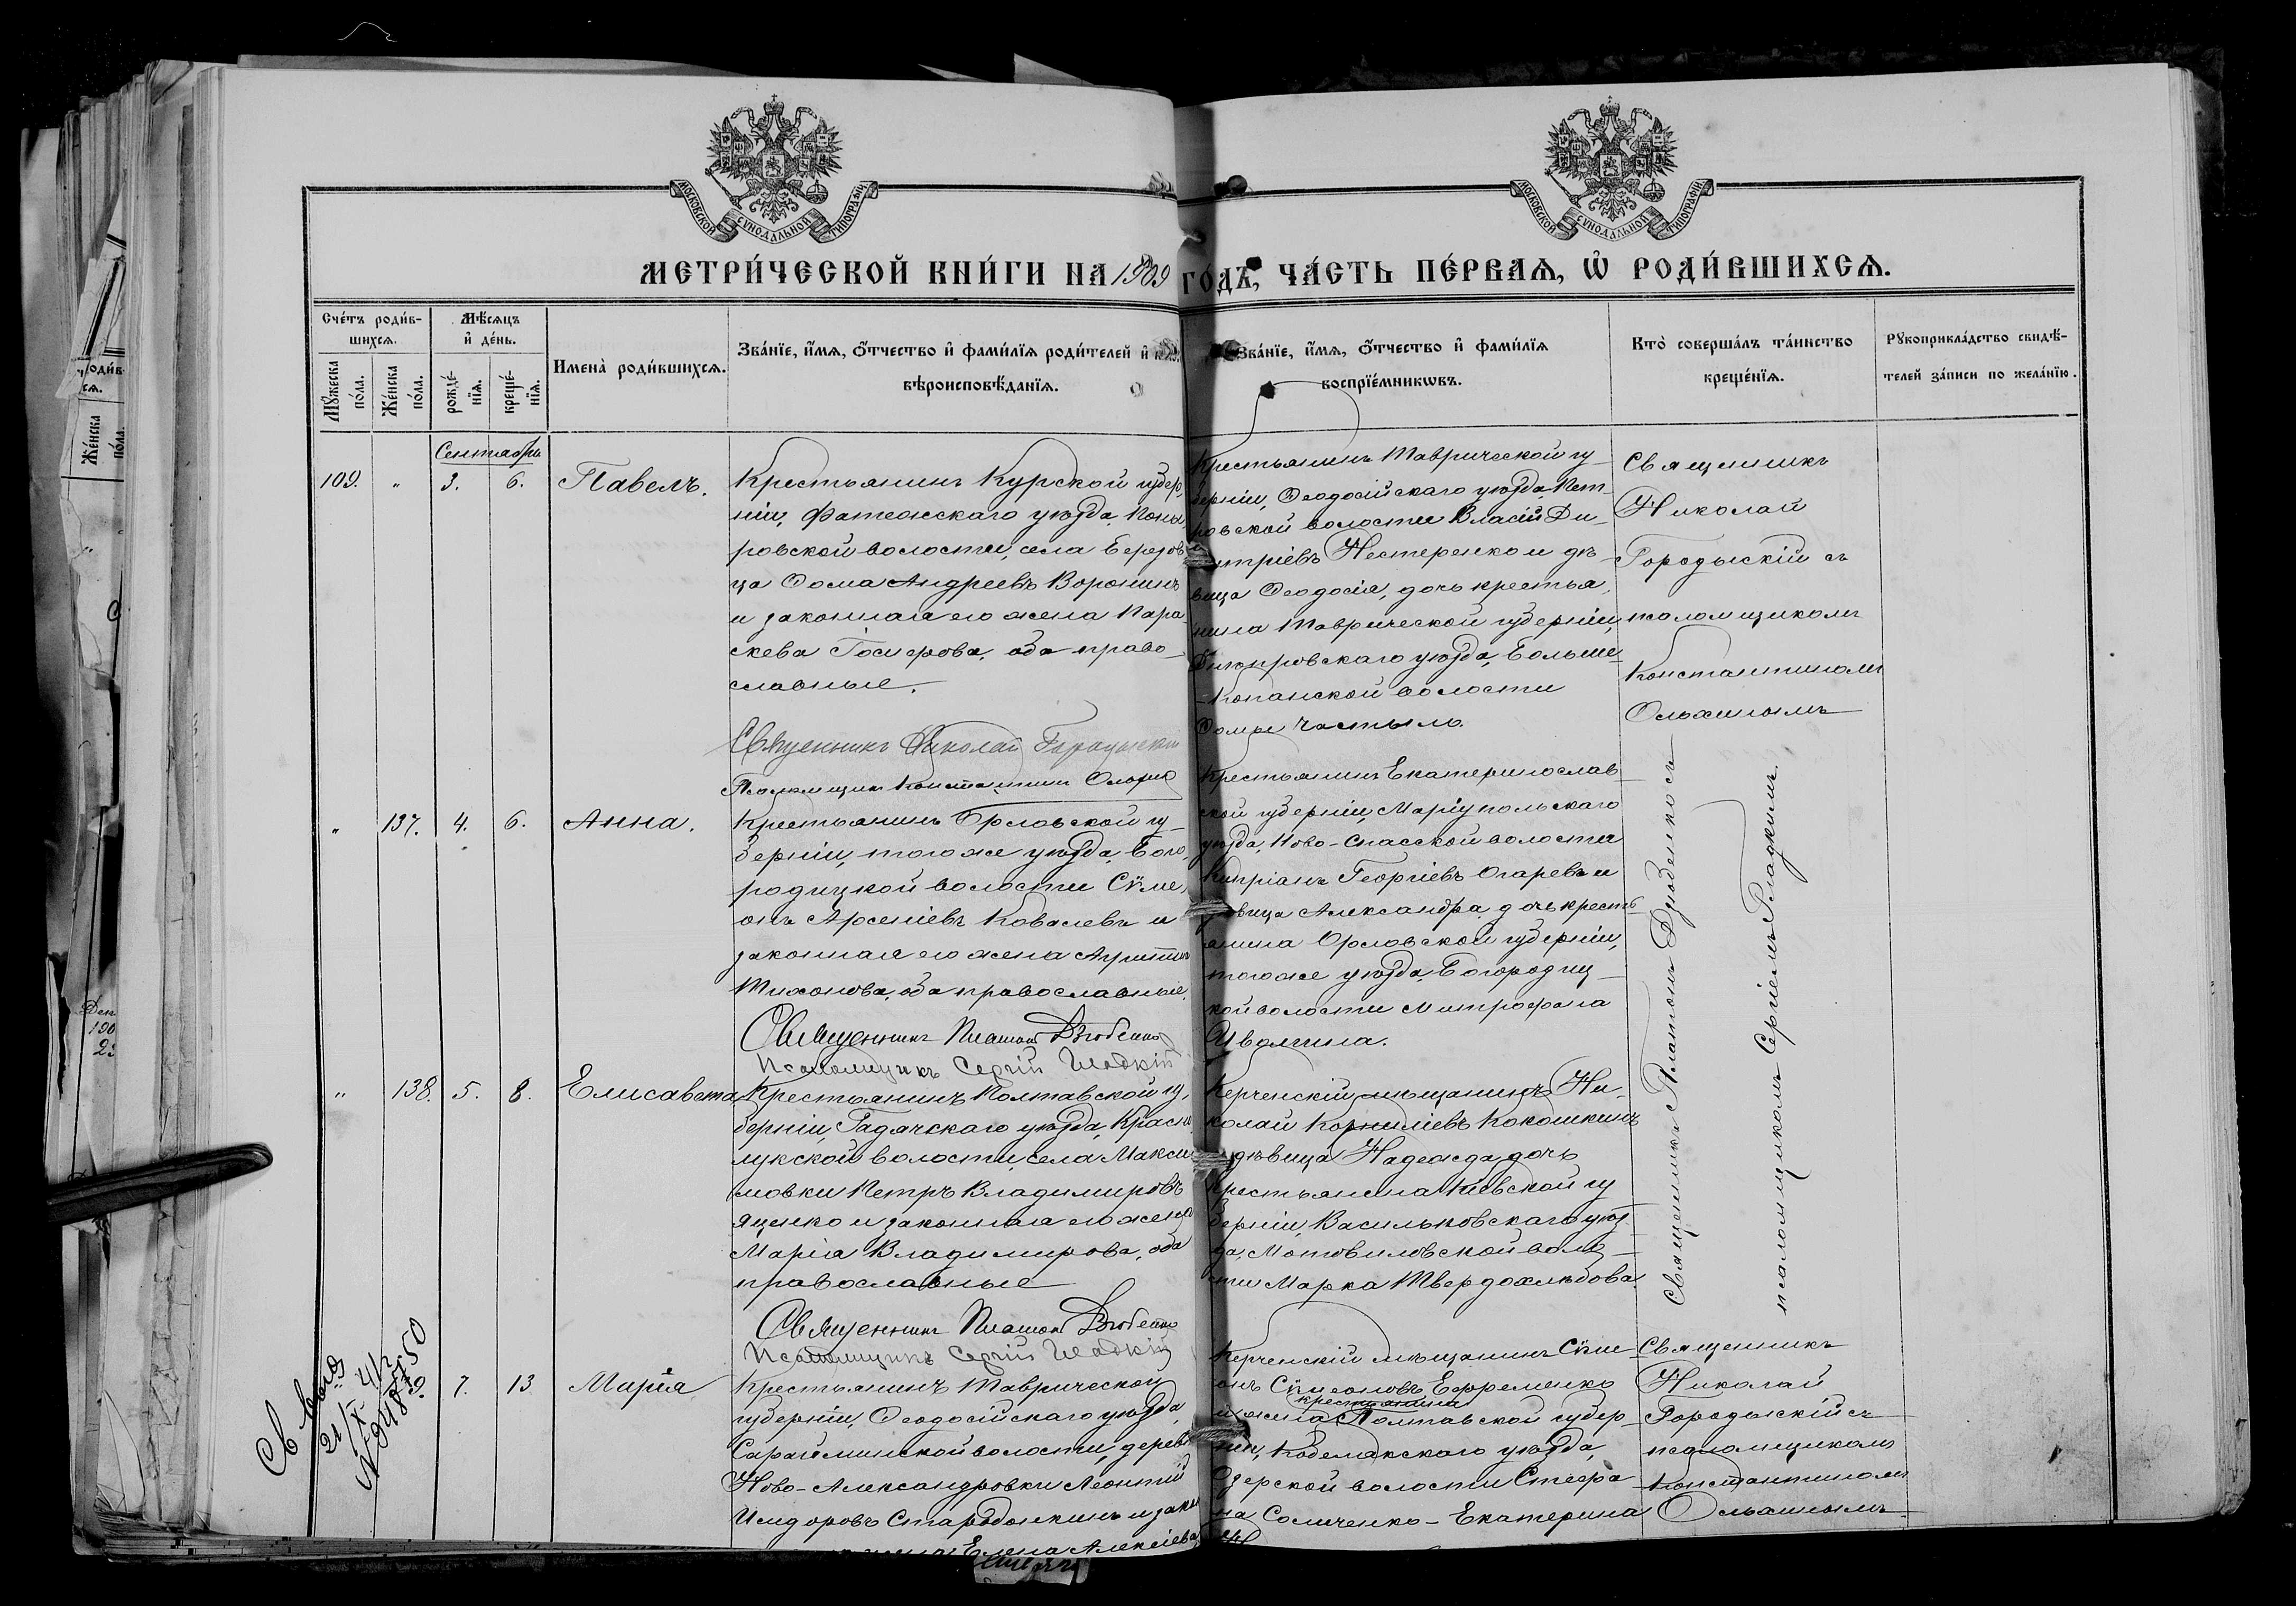 МОСКОВСКОЙ СѴНОДАЛЬНОЙ ТИПОГРАФІИ
МОСКОВСКОЙ СѴНОДАЛЬНОЙ ТИПОГРАФІИ
МЕТРИ́ЧЕСКОЙ КНИ́ГИ НА 1909 ГО́ДЪ, ЧА́СТЬ ПЕ́РВАѦ, Ѡ҆ РОДИ́ВШИХСѦ.
Сче́тъ роди́в-
шихсѧ.
Мꙋ́жеска по́ла.
Же́нска по́ла.
Мѣ́сѧцъ
и҆ де́нь.
рожде́-
нїѧ.
креще́-
нїѧ.
Имена̀ роди́вшихсѧ.
Зва́нїе, и҆́мѧ, ѻ҆́тчество и҆ фами́лїѧ роди́телей и҆
вѣроисповѣ́данїѧ.
Зва́нїе, и҆́мѧ, ѻ҆́тчество и҆ фами́лїѧ
воспрїе́мникѡвъ.
Кто̀ соверша́лъ та́инство
креще́нїѧ.
Рꙋкоприкла́дство свидѣ́-
телей за́писи по жела́нїю.
Сентябрь
109. " 3. 6. Павелъ.
Крестьянинъ Курской губер-
ніи, Фатежскаго уѣзда, Поны-
ровской волости, села Березов-
ца Ѳома Андреевъ Воронинъ
и законная его жена Пара-
скева Іосифова, оба право-
славные.
Священникъ Николай Городыскій
Псаломщикъ Константинъ
Крестьянинъ Таврической гу-
берніи, Ѳеодосійскаго уѣзда, Пет-
ровской волости Власій Ди-
митріевъ Нестеренко и дѣ-
вица Ѳеодосія, дочь крестья-
нина Таврической губерніи,
Днѣпровскаго уѣзда, Больше-
-Копанской волости
Ѳомы
Священникъ
Николай
Городыскій съ
псаломщикомъ
Константиномъ
" 137. 4. 6. Анна.
Крестьянинъ Орловской гу-
берніи, того же уѣзда, Бого-
родицкой волости Сѵме-
онъ Арсеніевъ Ковалевъ и
законная его жена
Тихонова, оба православные.
Священникъ Платонъ Дзюбенко
Псаломщикъ Сергій Гладкій
Крестьянинъ Екатеринослав-
ской губерніи, Маріупольскаго
уѣзда, Ново-Спасской волости
Кипріанъ Георгіевъ Огаревъ и
дѣвица Александра, дочь кресть-
янина Орловской губерніи,
того же уѣзда, Богородиц-
кой волости Митрофана
Ивонина.
Священникъ Платонъ Дзюбенко съ
псаломщикомъ Сергіемъ Гладкимъ.
" 138. 5. 8. Елисавета
Крестьянинъ Полтавской гу-
берніи, Гадячскаго уѣзда, Красно-
лукской волости, села Макси-
мовки Петръ Владимировъ
Яценко и законная его жена
Марія Владимирова, оба
православные
Священникъ Платонъ Дзюбенко
Псаломщикъ Сергій Гладкій
Керченскій мѣщанинъ Ни-
колай Корниліевъ Кокошкинъ
и дѣвица Надежда, дочь
крестьянина Кіевской гу-
берніи, Васильковскаго уѣз-
да, Мотовиловской воло-
сти Марка Твердохлѣбова.
7. 13 Марія
Крестьянинъ Таврической
губерніи, Ѳеодосійскаго уѣзда,
Сарайминской волости, деревни
Ново-Александровки Леонтій
Исидоровъ и законная
жена Елена Алексіева
Керченскій мѣщанинъ Сѵме-
онъ Сѵмеоновъ Ефременко
крестьянина
и жена Полтавской губер-
ніи, Кобелякскаго уѣзда,
Озерской волости Стефа-
на Соличенко - Екатерина
Священникъ
Николай
Городыскій съ
псаломщикомъ
Константиномъ